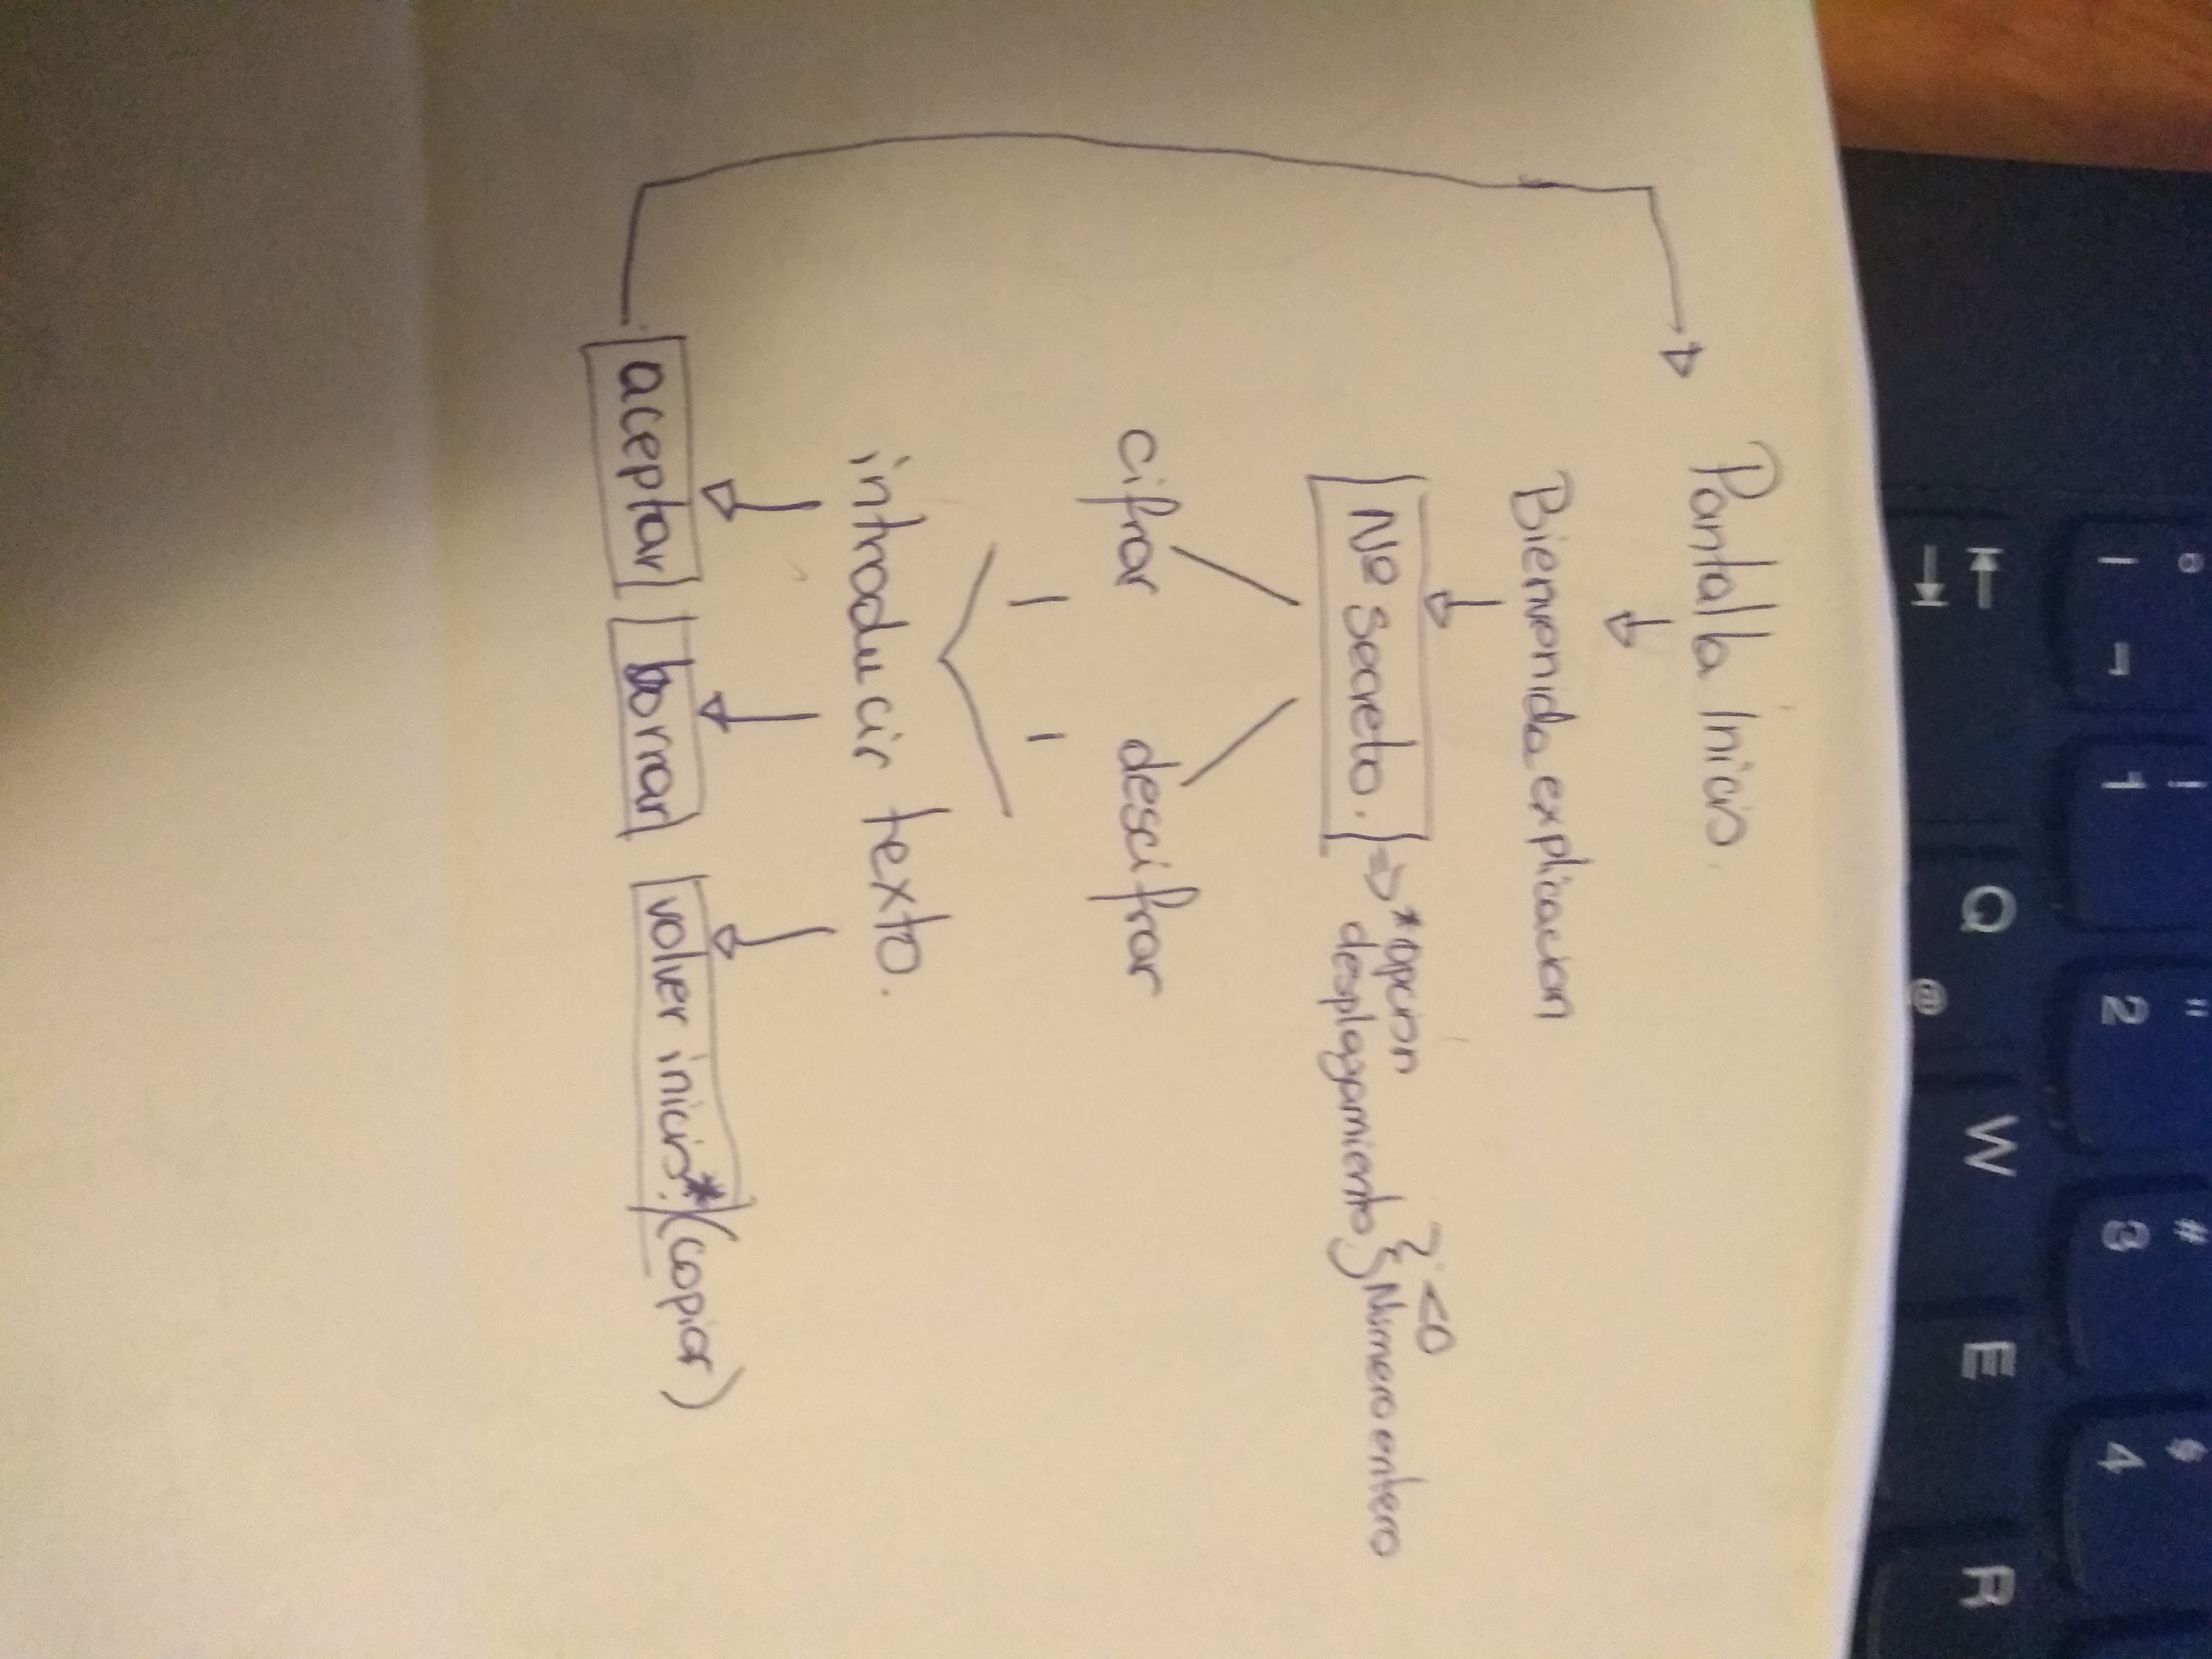 Pantalla Inicio.
Bienvenida explicacion
Nº Secreto. => *opción
desplazamiento. } <0
} Numero entero
cifrar descifrar
introducir texto.
aceptar borrar volver inicio.* (copiar)
! " # $
1 2 3 4
Q W E R
@